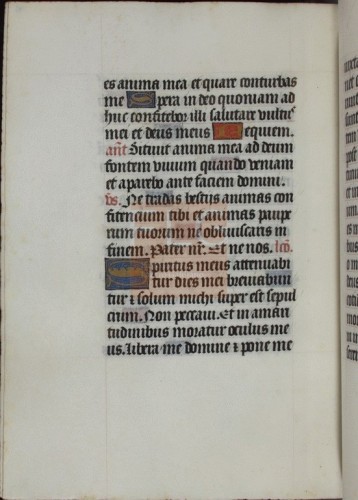 es anima mea et quare conturbas
me Spera in deo quoniam ad
huc confitebor illi salutare vultus
mei et deus meus Requiem.
añt Sitivit anima mea ad deum
fontem vivum quando veniam
et aparebo ante faciem domini.
vs. Ne tradas bestijs animas con
fitencium tibi et animas paupe
rum tuorum ne obliviscaris in
finem. Pater nr̄. Et ne nos. lco
Spiritus meus attenuabi
tur dies mei breviabun
tur & solum michi super est sepul
crum. Non peccavi. Et in amari
tudinibus moratur oculus me
us. Libera me domine & pone me